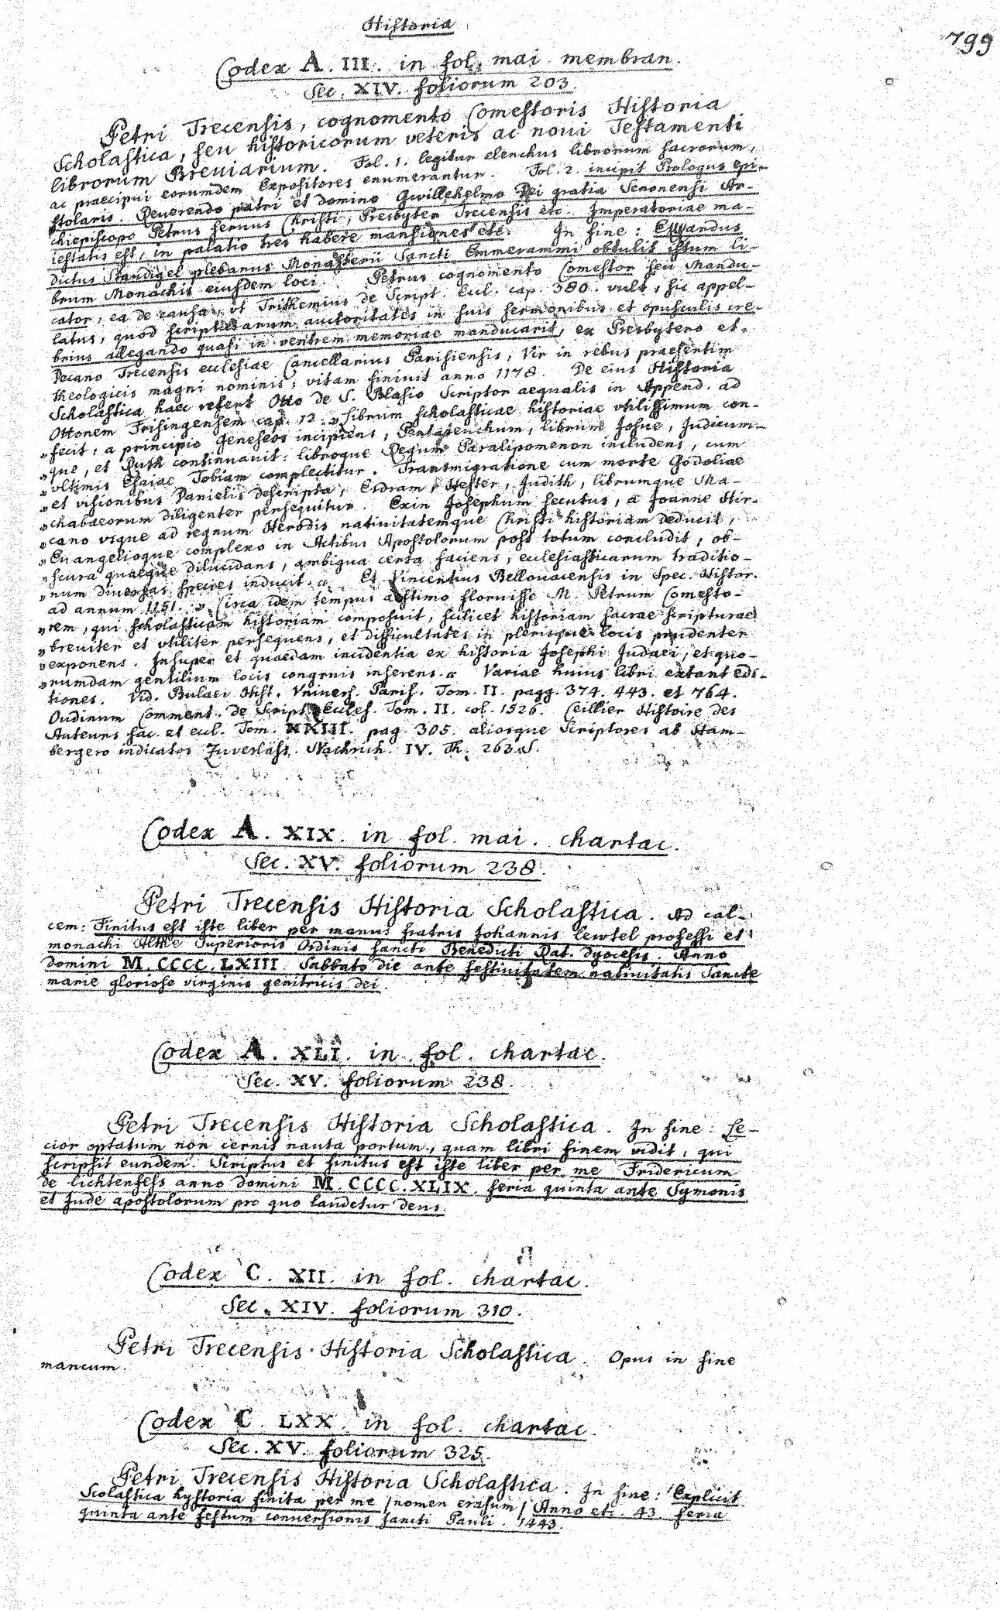 Historia
799
Codex A. III. in fol. mai membran.
Sec. XIV. foliorum 203.
Petri Trecensis, cognomento Comestoris Historia
Scholastica, seu historicorum veteris ac noui Testamenti
librorum Breuiarium. Fol. 1. legitur elenchus librorum sacrorum,
ac praecipui eorumdem Expositores enumerantur. Fol. 2. incipit Prologus epi-
stolaris. Reuerendo patri et domino Gwillehelmo Dei gratia Senonensi Ar-
chiepiscopo Petrus seruus Christi, Presbyter Trecensis etc. Imperatoriae ma-
iestatis est, in palatio tres habere mansiones etc. In fine: Chuandus
dictus Standigel plebanus Monasterii Sancti Emmerammi obtulit istum li-
brum Monachis eiusdem loci. Petrus cognomento Comestor seu Mandu-
cator, ea de causa, vt Trithemius de Script. Eccl. cap. 380. vult, sic appel-
latus, quod scripturarum auctoritates in suis sermonibus et opusculis cre-
brius allegando quasi in ventrem memoriae manducarit, ex Presbytero et
Decano Trecensis ecclesiae Cancellarius Parisiensis, Vir in rebus praesertim
theologicis magni nominis, vitam finiuit anno 1178. De eius Historia
Scholastica haec refert Otto de S. Blasio Scriptor aequalis in Append. ad
Ottonem Frisingensem cap. 12. „Librum scholasticae historiae vtilissimum con-
„fecit, a principio Geneseos incipiens, Pentateuchum, librum Josue, Judicum-
„que, et Ruth continuauit: librosque Regum Paralipomenon includens, cum
„vltimis Esaiae Tobiam complectitur. Transmigratione cum morte Godoliae
„et visionibus Danielis descripta, Esdram, Hester, Judith, librumque Ma-
„chabaeorum diligenter persequitur. Exin Josephum secutus, a Joanne Hir-
„cano vsque ad regnum Herodis natiuitatemque Christi historiam deducit,
„Euangelioque complexo in Actibus Apostolorum post totum concludit, ob-
„scura quaeque dilucidans, ambigua certa faciens, ecclesiasticarum traditio-
„num diuersas species inducit.“ Et Vincentius Bellouacensis in Spec. Histor.
ad annum 1151. „Circa idem tempus aestimo floruisse M. Petrum Comesto-
„rem, qui scholasticam historiam composuit, scilicet historiam sacrae scripturae
„breuiter et vtiliter persequens, et difficultates in plerisque locis prudenter
„exponens. Insuper et quaedam incidentia ex historia Josephi Judaei, et quo-
„rumdam gentilium locis congruis inserens.“ Variae huius libri extant edi-
tiones. Vid. Bulaei Hist. Vniuers. Paris. Tom. II. pagg. 374. 443. et 764.
Oudinum Comment. de Script. Eccles. Tom. II. col. 1526. Ceillier Histoire des
Auteurs sac. et eccl. Tom. XXIII. pag. 305. aliosque Scriptores ab Ham-
bergero indicatos Zuverläss. Nachrich. IV. Th. 263. S.
Codex A. XIX. in fol. mai. chartac.
Sec. XV. foliorum 238.
Petri Trecensis Historia Scholastica. Ad cal-
cem: Finitus est iste liber per manus fratris Johannis Lewtel professi et
monachi Althe Superioris Ordinis sancti Benedicti Pat. dyocesis. Anno
domini M. CCCC. LXIII. Sabbato die ante festiuitatem natiuitatis Sancte
marie gloriose virginis genitricis dei.
Codex A. XLI. in fol. chartac.
Sec. XV. foliorum 238.
Petri Trecensis Historia Scholastica. In fine: Se-
cior optatum non cernit nauta portum, quam libri finem vidit, qui
scripsit eundem. Scriptus et finitus est iste liber per me Fridericum
de lichtenfels anno domini M. CCCC. XLIX. feria quinta ante Symonis
et Jude apostolorum pro quo laudetur deus.
Codex C. XII. in fol. chartac.
Sec. XIV. foliorum 310.
Petri Trecensis Historia Scholastica. Opus in fine
mancum.
Codex C. LXX. in fol. chartac.
Sec. XV. foliorum 325.
Petri Trecensis Historia Scholastica. In fine: Explicit
Scolastica hystoria finita per me /nomen erasum/ Anno etc. 43. feria
quinta ante festum conuersionis sancti Pauli. 1443.